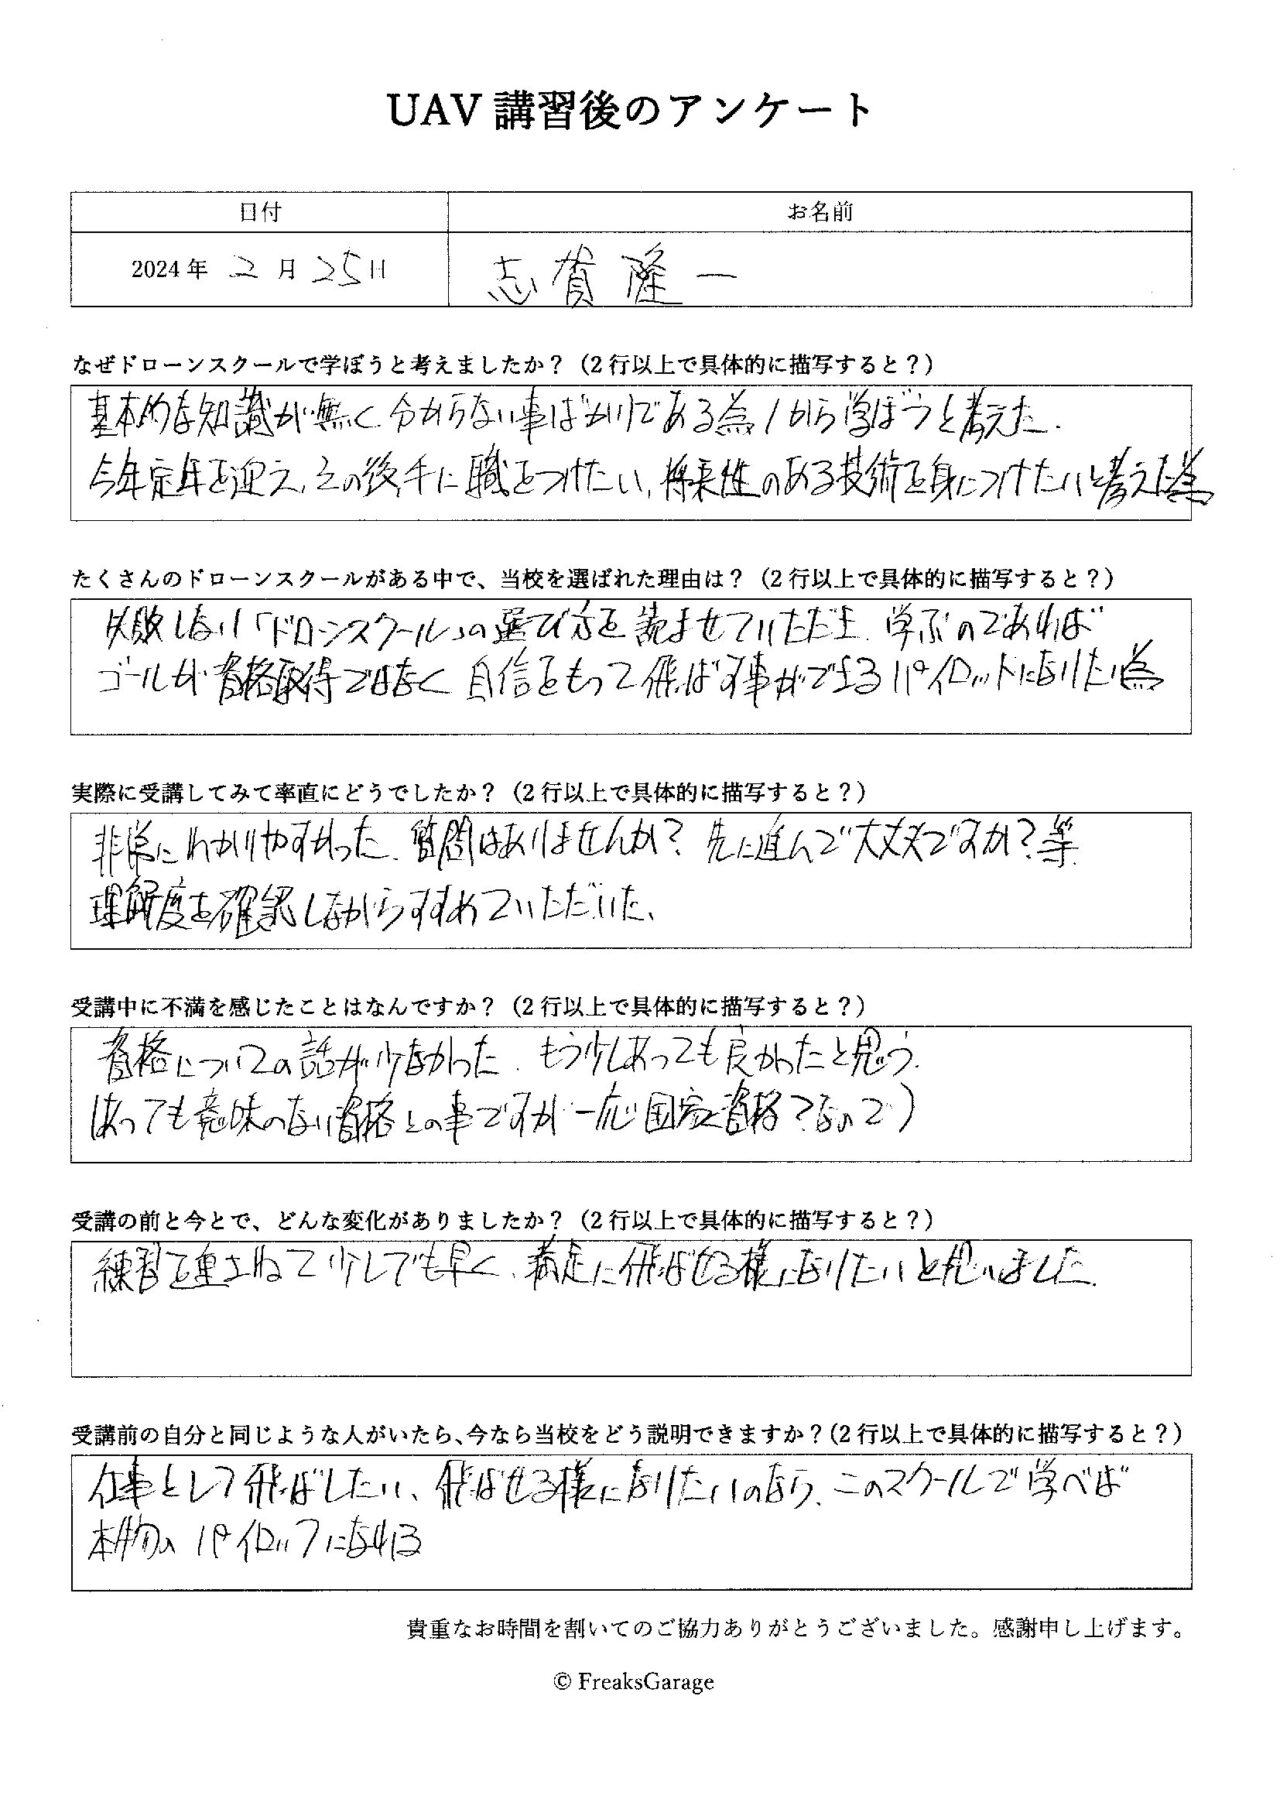 UAV 講習後のアンケート
日付
お名前
2024年 2月 25日
志賀隆一
なぜドローンスクールで学ぼうと考えましたか？（2行以上で具体的に描写すると？）
基本的な知識が無く、分からない事ばかりである為1から学ぼうと考えた.
今年定年を迎え、その後、手に職をつけたい、将来性のある技術を身につけたいと考えた為
たくさんのドローンスクールがある中で、当校を選ばれた理由は？（2行以上で具体的に描写すると？）
失敗しない「ドローンスクール」の選び方を読ませていただき、学ぶのであれば
ゴールが資格取得ではなく自信をもって飛ばす事ができるパイロットになりたい為
実際に受講してみて率直にどうでしたか？（2行以上で具体的に描写すると？）
非常にわかりやすかった、質問はありませんか？先に進んで大丈夫ですか？等
理解度を確認しながらすすめていただいた、
受講中に不満を感じたことはなんですか？（2行以上で具体的に描写すると？）
資格についての話が少なかった、もう少しあっても良かったと思う.
(あっても意味のない資格との事ですが一応国家資格？なので)
受講の前と今とで、どんな変化がありましたか？（2行以上で具体的に描写すると？）
練習を重さねて少しでも早く、満足に飛ばせる様になりたいと思いました.
受講前の自分と同じような人がいたら、今なら当校をどう説明できますか？（2行以上で具体的に描写すると？）
仕事として飛ばしたい、飛ばせる様になりたいのなら、このスクールで学べば
本物のパイロットになれる
貴重なお時間を割いてのご協力ありがとうございました。感謝申し上げます。
© FreaksGarage